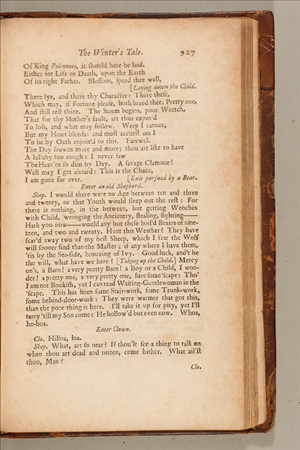 The Winter's Tale. 927
Of King Polixenes, it should here be laid,
Either for Life or Death, upon the Earth
Of its right Father. Blossom, speed thee well,
[Laying down the Child.
There lye, and there thy Character: There these,
Which may, if Fortune please, both breed thee, Pretty one,
And still rest thine. The Storm begins, poor Wretch,
That for thy Mother's fault, art thus expos'd
To loss, and what may follow. Weep I cannot,
But my Heart bleeds: and most accurst am I
To be by Oath enjoin'd to this. Farewel.
The Day frowns more and more; thou art like to have
A lullaby too rough: I never saw
The Heav'ns so dim by Day. A savage Clamour!
Well may I get aboard: This is the Chace,
I am gone for ever. [Exit pursued by a Bear.
Enter an old Shepherd.
Shep. I would there were no Age between ten and three
and twenty, or that Youth would sleep out the rest: For
there is nothing, in the between, but getting Wenches
with Child, wronging the Ancientry, stealing, fighting——
Hark you now——would any but these boil'd Brains of nine-
teen, and two and twenty, Hunt this Weather? They have
scar'd away two of my best Sheep, which I fear the Wolf
will sooner find than the Master; if any where I have them,
'tis by the Sea-side, brouzing of Ivy. Good luck, and't be
thy will, what have we here? [Taking up the Child.] Mercy
on's, a Barn! a very pretty Barn! a Boy or a Child, I won-
der! a pretty one, a very pretty one, sure some 'scape: Tho'
I am not Bookish, yet I can read Waiting-Gentlewoman in the
'scape. This has been some Stair-work, some Trunk-work,
some behind-door-work: They were warmer that got this,
than the poor thing is here. I'll take it up for pity, yet I'll
tarry 'till my Son come: He hollow'd but even now. Whoa,
ho-hoa.
Enter Clown.
Clo. Hilloa, loa.
Shep. What, art so near? If thou'lt see a thing to talk on
when thou art dead and rotten, come hither. What ail'st
thou, Man?
Clo.